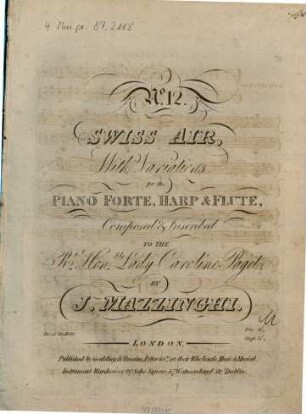 4 Mus. pr. 87.2118
No. 12.
SWISS AIR,
With Variations
for the
PIANO FORTE, HARP & FLUTE,
Composed & Inscribed
TO THE
Rt. Hon.ble Lady Caroline Paget,
BY
J. MAZZINGHI.
LONDON,
Published by Goulding D'Almaine, Potter & Co. at their Wholesale Music & Musical
Instrument Warehouse, 20 Soho Square, & 7 Westmorland Str. Dublin.